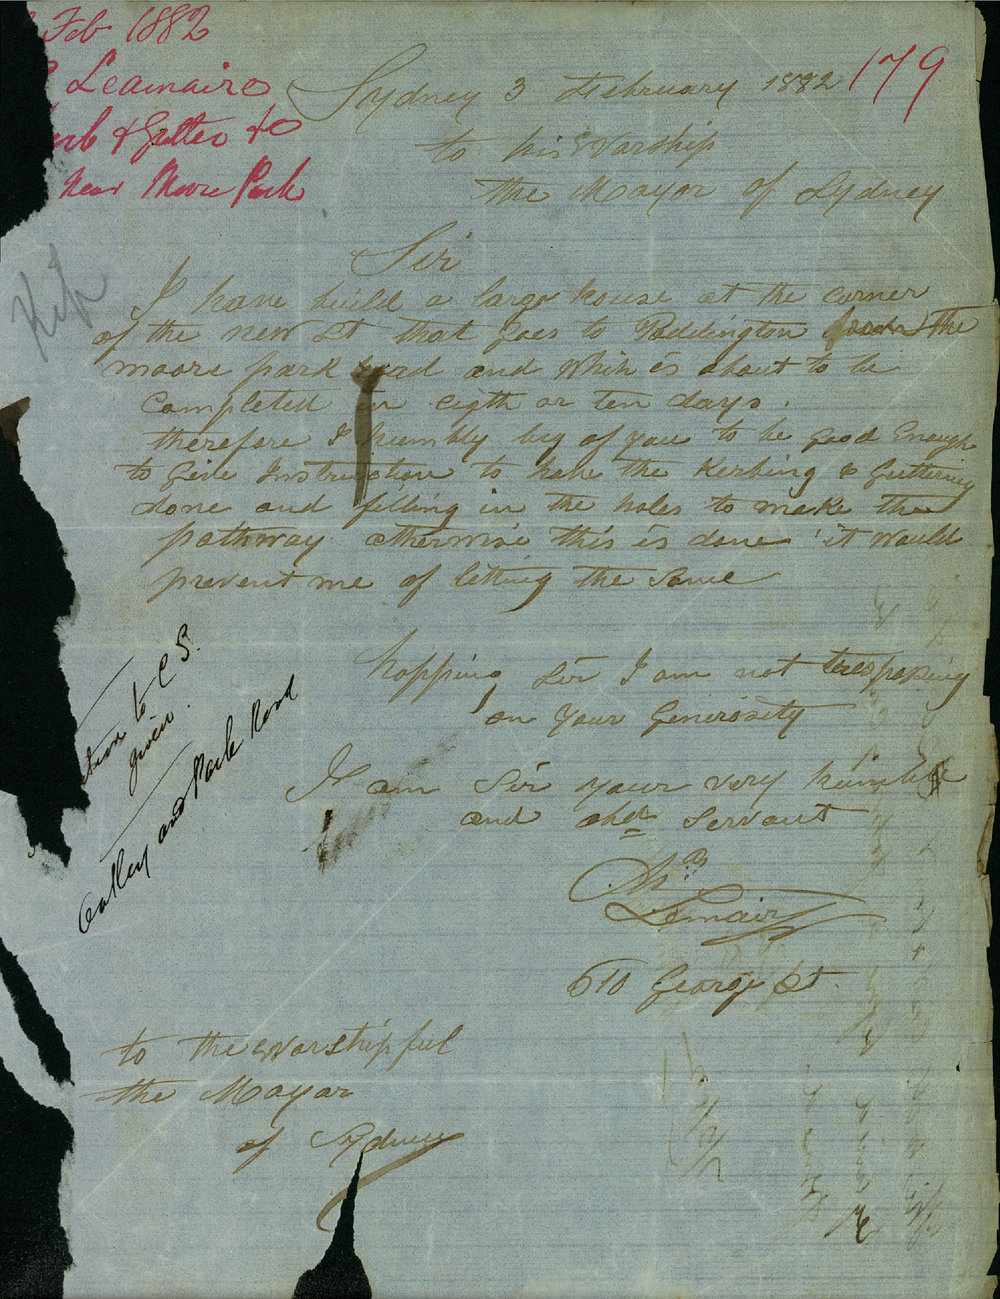 Feb 1882
Leamaire
& Gutter to
near Moore Park
179
Sydney 3 February 1882
to his Worship
the Mayor of Sydney
Sir
I have build a large house at the corner
of the new St that goes to Paddington the
moore park road and which is about to be
completed in eigth or ten days.
therefore I humbly beg of you to be good Enough
to Give Instruction to have the Kerbing & Guttering
done and filling in the holes to make the
pathway otherwise this is done it would
prevent me of letting the same
hopping Sir I am not trespasing
on your Generosity
I am Sir your very humble
and obdt Servant
Lemair
610 George St.
to the Worshipful
the Mayor
of Sydney
to C S.
given.
Oatley and Park Road